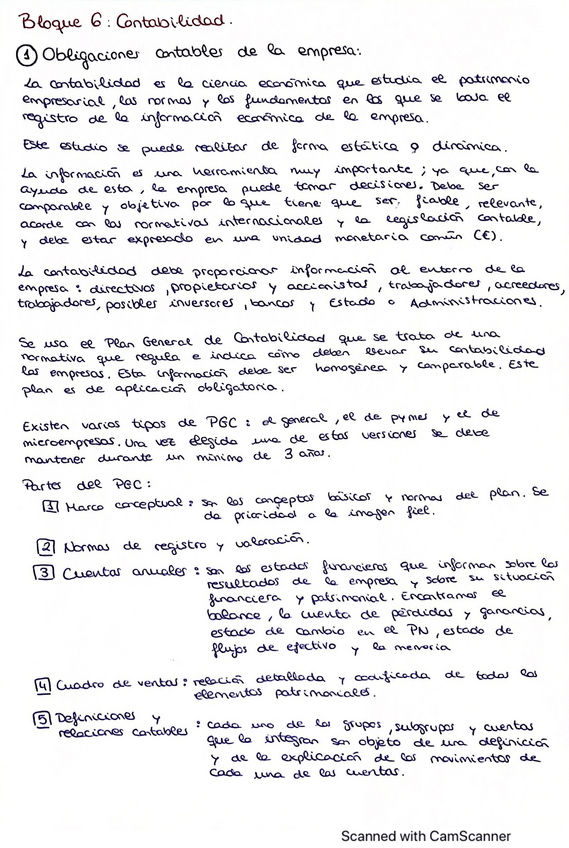 Bloque 6: Contabilidad.
1 Obligaciones contables de la empresa:
La contabilidad es la ciencia económica que estudia el patrimonio
empresarial, las normas y los fundamentos en los que se basa el
registro de la información económica de la empresa.
Este estudio se puede realizar de forma estática o dinámica.
La información es una herramienta muy importante; ya que, con la
ayuda de esta, la empresa puede tomar decisiones. Debe ser
comparable y objetiva por lo que tiene que ser: fiable, relevante,
acorde con las normativas internacionales y la legislación contable,
y debe estar expresado en una unidad monetaria común (€).
La contabilidad debe proporcionar información al entorno de la
empresa: directivos, propietarios y accionistas, trabajadores, acreedores,
trabajadores, posibles inversores, bancos y Estado o Administraciones.
Se usa el Plan General de Contabilidad que se trata de una
normativa que regula e indica cómo deben llevar su contabilidad
las empresas. Esta información debe ser homogénea y comparable. Este
plan es de aplicación obligatoria.
Existen varios tipos de PGC: el general, el de pymes y el de
microempresas. Una vez elegida una de estas versiones se debe
mantener durante un mínimo de 3 años.
Partes del PGC:
1 Marco conceptual: son los conceptos básicos y normas del plan. Se
da prioridad a la imagen fiel.
2 Normas de registro y valoración.
3 Cuentas anuales: son los estados financieros que informan sobre los
resultados de la empresa y sobre su situación
financiera y patrimonial. Encontramos el
balance, la cuenta de pérdidas y ganancias,
estado de cambio en el PN, estado de
flujos de efectivo y la memoria
4 Cuadro de ventas: relación detallada y codificada de todos los
elementos patrimoniales.
5 Definiciones y relaciones contables: cada uno de los grupos, subgrupos y cuentas
que la integran son objeto de una definición
y de la explicación de los movimientos de
cada una de las cuentas.
Scanned with CamScanner